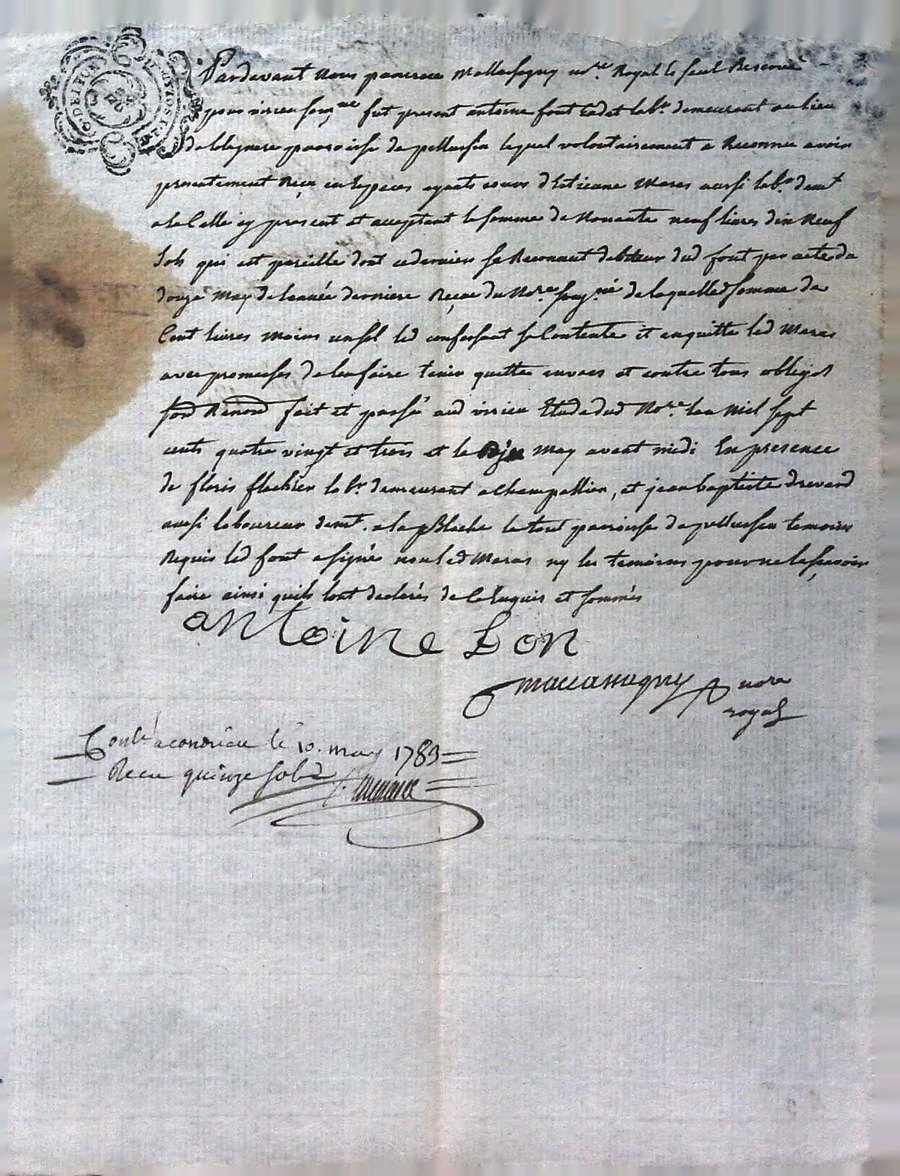 Pardevant Nous pancrace Mallassagny no.re Royal le seul Reservé
pour virieu sou.né fut present antoine font Cadet lab.r demeurant au lieu
de paroisse de pellussin lequel volontairement a Reconnu avoir
presentement Reçu en Espèces ayants cours d'Estienne Maras aussi lab.r dem.t
a la Celle cy present et acceptant la somme de Nonante neuf livres dix Neuf
Sols qui est pareille dont ce dernier se Reconnut debiteur dud font par acte du
douze May de l'année derniere Reçu du No.re sou.né de laquelle somme de
Cent livres moins un sol led confessant se Contente et en quitte led Maras
avec promesses de l'en faire tenir quitte envers et contre tous obligat
fait et passé aud virieu Etude dud No.re l'an Mil Sept
cents quatre vingt et trois et le may avant midi En presence
de floris flachier lab.r demeurant a Champallion, et jean baptiste drevard
aussi laboureur demt. a la Blache le tout paroisse de pellussin temoins
Requis led font a signé non led Maras ny les temoins pour ne le sçavoir
faire ainsi quils l'ont declarés de ce Enquis et sommés
antoine Fon
mallassagny no.re
royal
Contlé a condrieu le 10. may 1783
Recu quinze sols